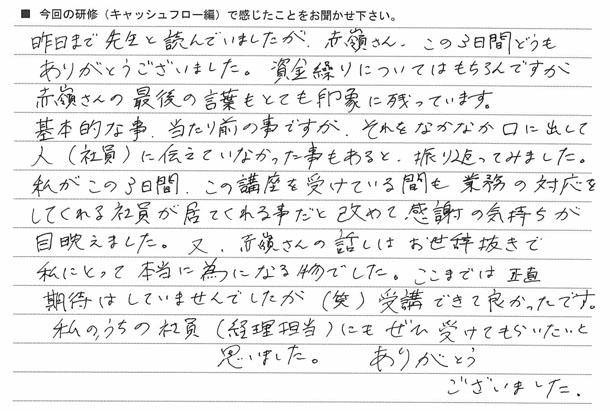 ■ 今回の研修（キャッシュフロー編）で感じたことをお聞かせ下さい。
昨日まで先生と読んでいましたが、赤嶺さん、この3日間どうも
ありがとうございました。資金繰りについてはもちろんですが
赤嶺さんの最後の言葉もとても印象に残っています。
基本的な事、当たり前の事ですが、それをなかなか口に出して
人（社員）に伝えていなかった事もあると、振り返ってみました。
私がこの3日間、この講座を受けている間も業務の対応を
してくれる社員が居てくれる事だと改めて感謝の気持ちが
目映えました。又、赤嶺さんの話しはお世辞抜きで
私にとって本当に為になる物でした。ここまでは正直
期待はしていませんでしたが（笑）受講できて良かったです。
私のうちの社員（経理担当）にもぜひ受けてもらいたいと
思いました。ありがとう
ございました。